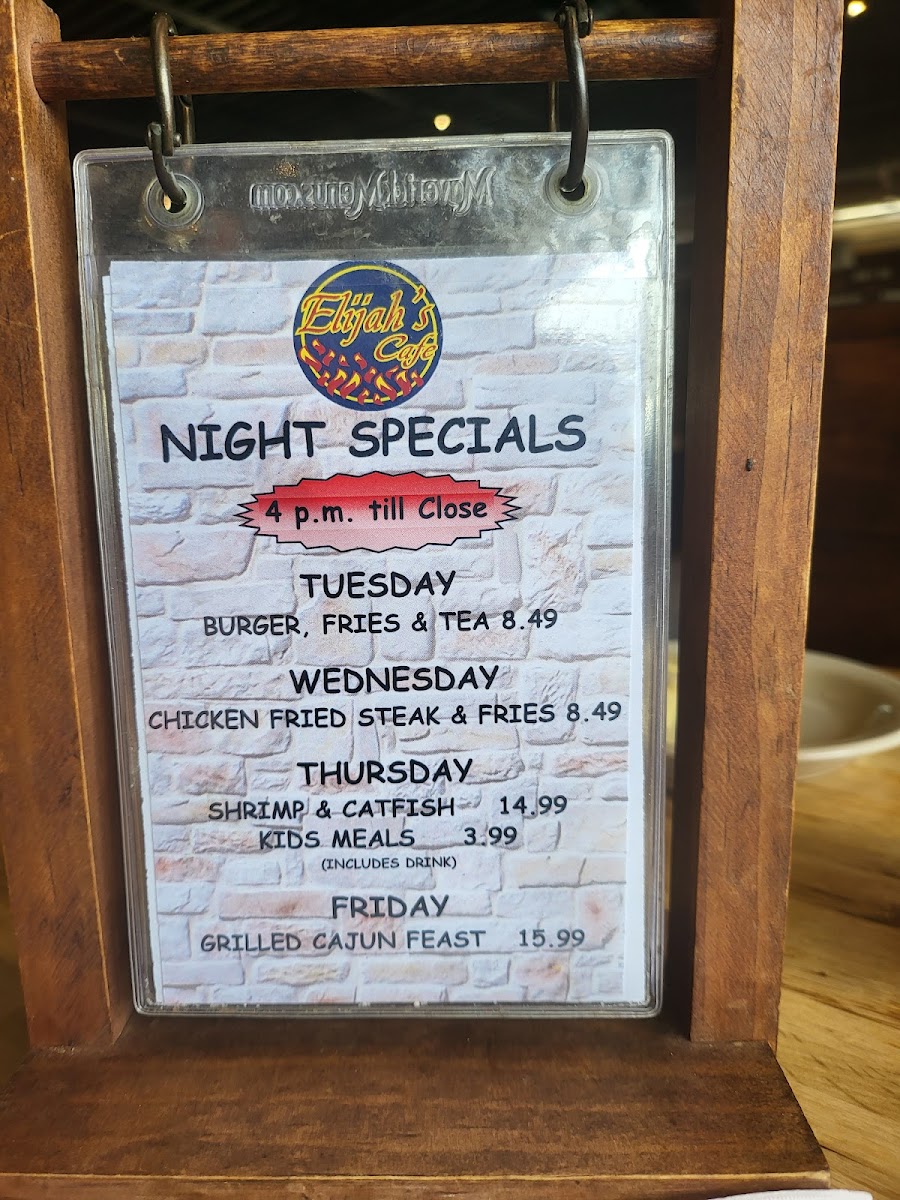 MaverikMenus.com
Elijah's
Cafe
NIGHT SPECIALS
4 p.m. till Close
TUESDAY
BURGER, FRIES & TEA 8.49
WEDNESDAY
CHICKEN FRIED STEAK & FRIES 8.49
THURSDAY
SHRIMP & CATFISH 14.99
KIDS MEALS 3.99
(INCLUDES DRINK)
FRIDAY
GRILLED CAJUN FEAST 15.99